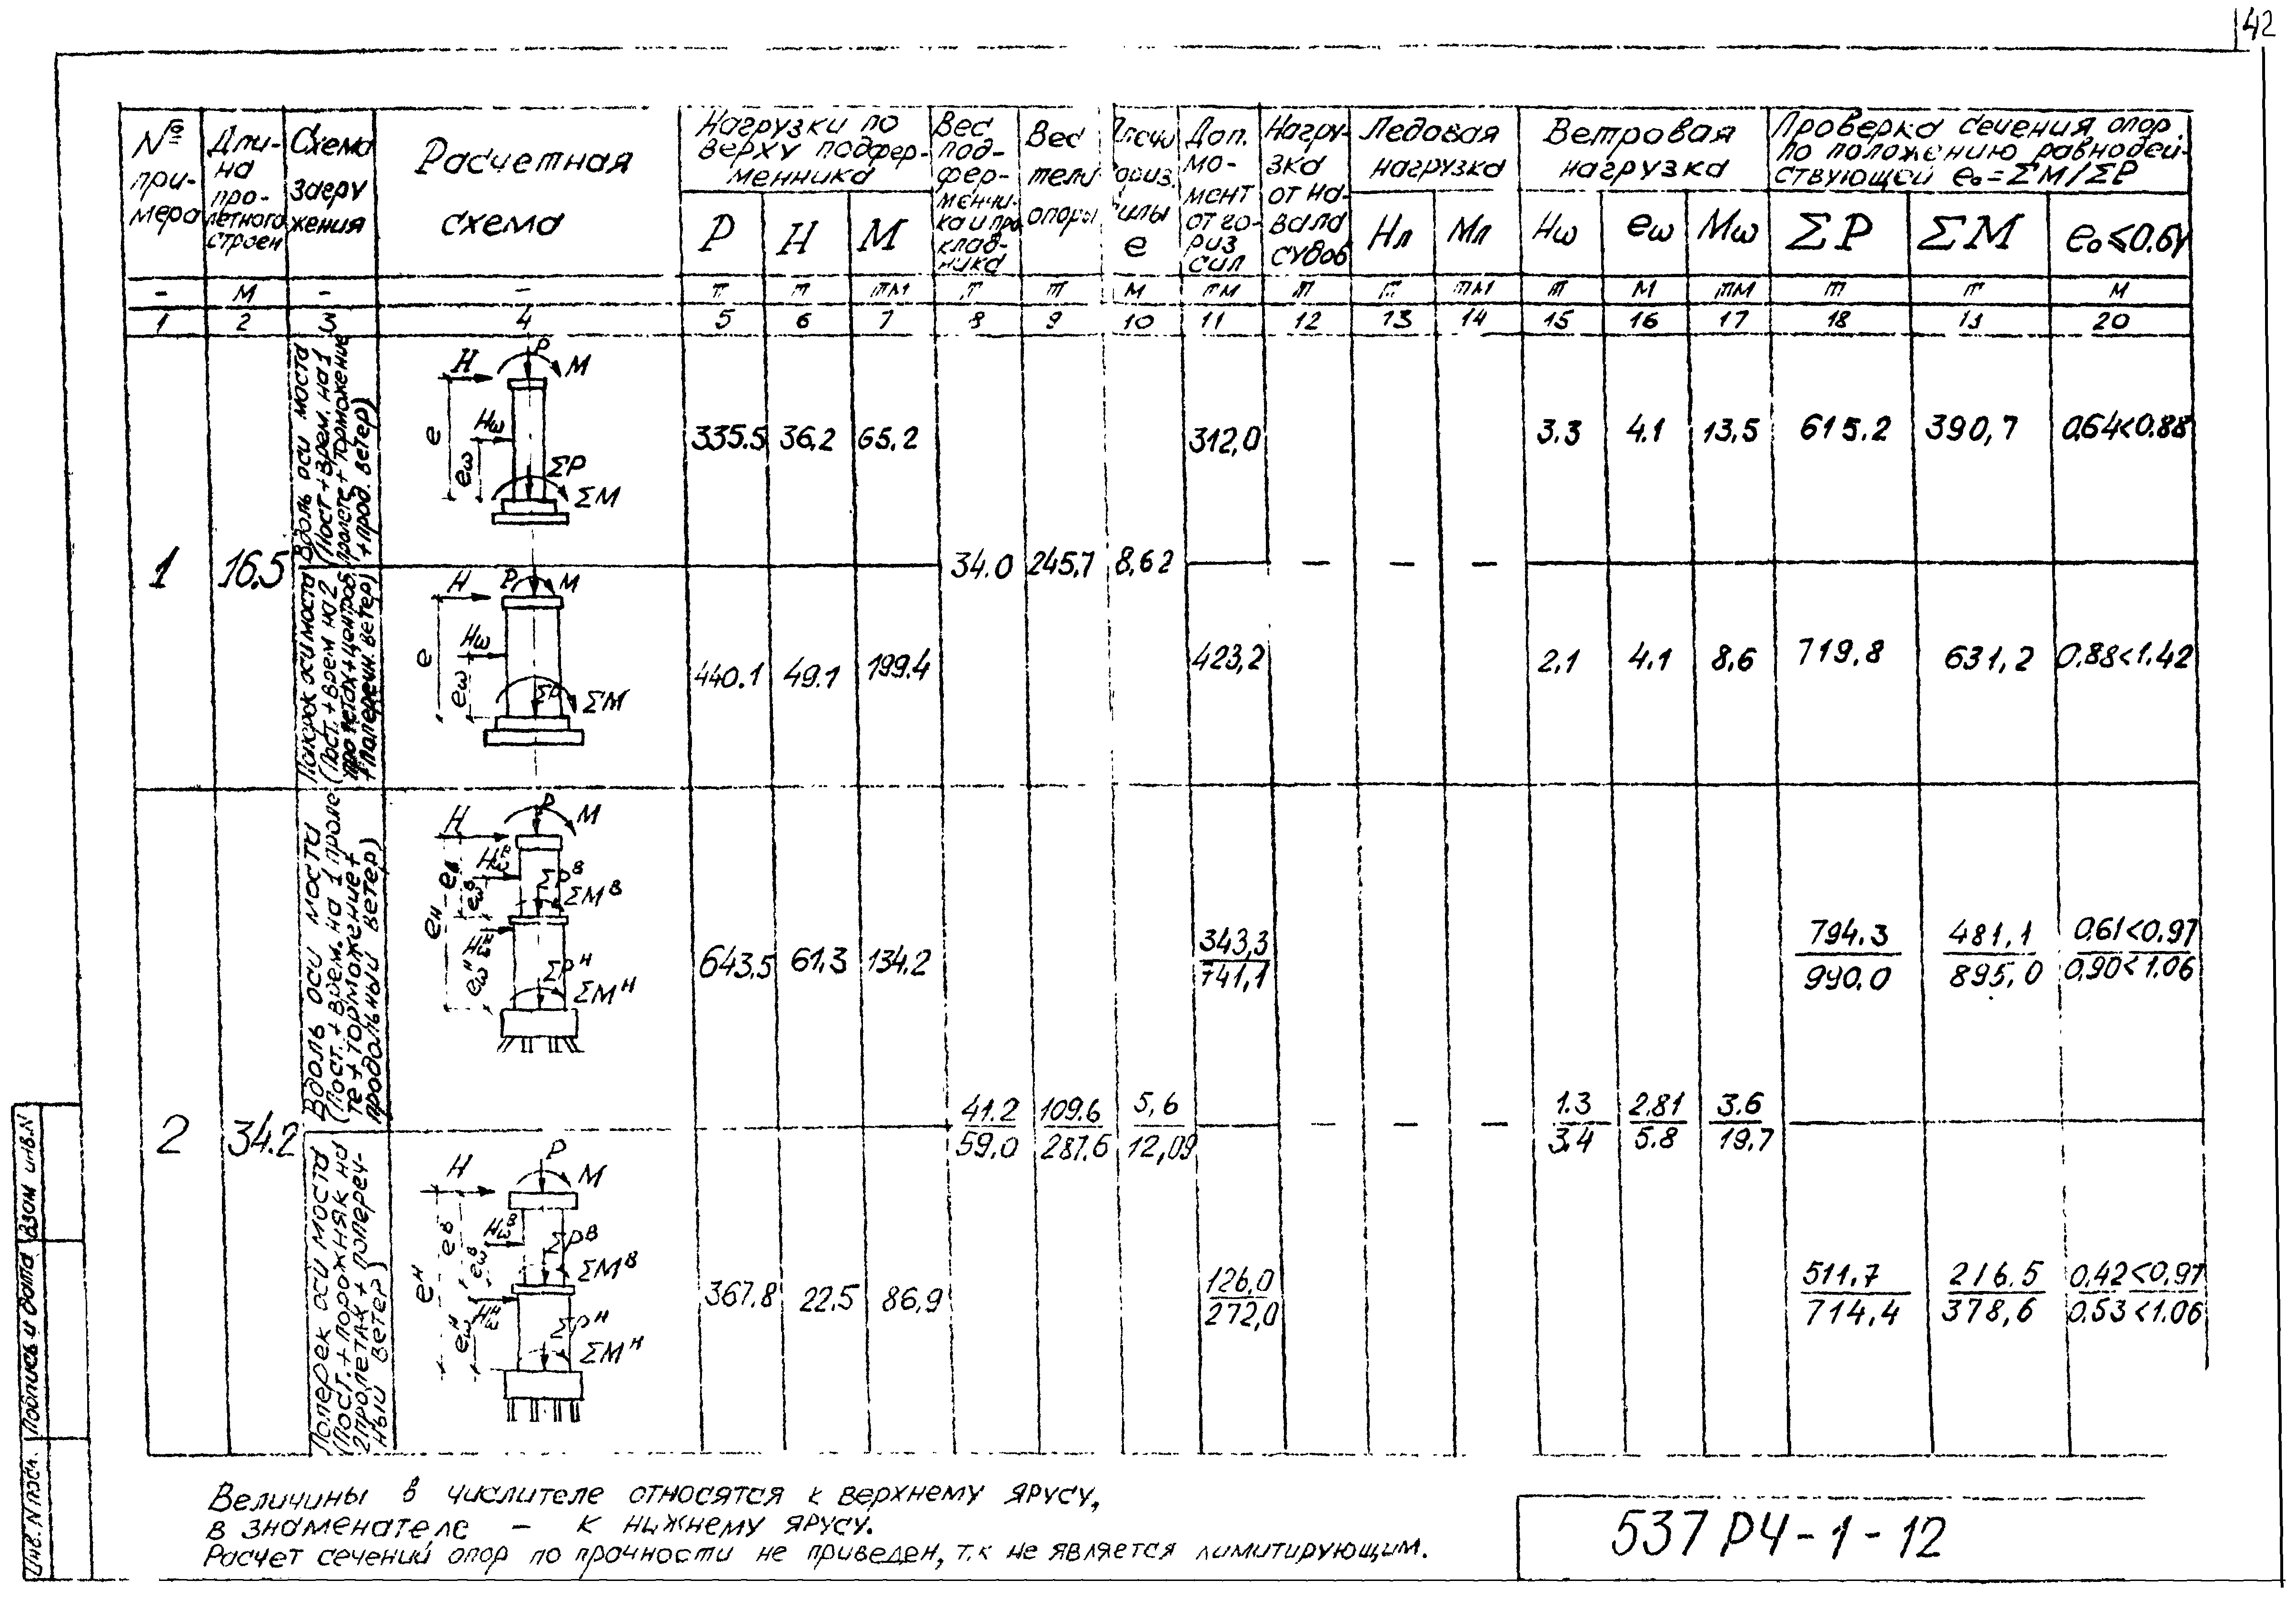 42
№ при- мера
Дли- на про- летного строен
Схема загру жения
Расчетная схема
Нагрузки по верху подфер- менника
Вес под- фер- менни- ка и про клад- ника
Вес тела опоры
Плечо гориз. силы е
Доп. мо- мент от го- риз сил
Нагру- зка от на- вала судов
Ледовая нагрузка
Ветровая нагрузка
Проверка сечения опор. по положению равнодей- ствующей e₀=ΣM/ΣP
P H M
Hл Mл
Hω eω Mω
ΣP ΣM e₀≤0.6y
– м – – т т тм т т м тм т т тм т м тм т т м
1 2 3 4 5 6 7 8 9 10 11 12 13 14 15 16 17 18 19 20
1
16.5
Вдоль оси моста
(Пост+врем. на 1
пролете+торможение
+прод. ветер)
H P M
e Hω eω
ΣP
ΣM
335.5 36.2 65.2
312,0
3.3 4.1 13,5 615.2 390,7 0,64<0.88
34.0 245,7 8,62
– – –
Поперек оси моста
(Пост.+врем на 2
пролетах+центроб.
+поперечн. ветер)
H P M
e Hω eω
ΣP ΣM
440.1 49.1 199.4
423,2
2,1 4,1 8,6 719,8 631,2 0.88<1.42
2
34.2
Вдоль оси моста
(Пост.+врем. на 1 проле-
те+торможение+
продольный ветер)
H P M
Hωᴮ eᴮ eωᴮ
ΣPᴮ
ΣMᴮ
eᴴ Hωᴴ eωᴴ
ΣPᴴ
ΣMᴴ
643,5 61,3 134.2
343,3
741,1
794.3 481,1 0,61<0,97
990.0 895,0 0,90<1.06
41.2 109.6 5,6
59.0 287.6 12,09
– – –
1.3 2.81 3.6
3.4 5.8 19,7
Поперек оси моста
(Пост.+порожняк на
2 пролетах+попереч-
ный ветер)
H P M
Hωᴮ eᴮ eωᴮ
ΣPᴮ
ΣMᴮ
eᴴ Hωᴴ eωᴴ
ΣPᴴ
ΣMᴴ
367.8 22.5 86,9
126,0
272,0
511.7 216.5 0,42<0,97
714,4 378,6 0.53<1.06
Величины в числителе относятся к верхнему ярусу,
в знаменателе – к нижнему ярусу.
Расчет сечений опор по прочности не приведен, т.к не является лимитирующим.
537 РЧ-1-12
Инв. N подл. Подпись и дата Взам инв. N